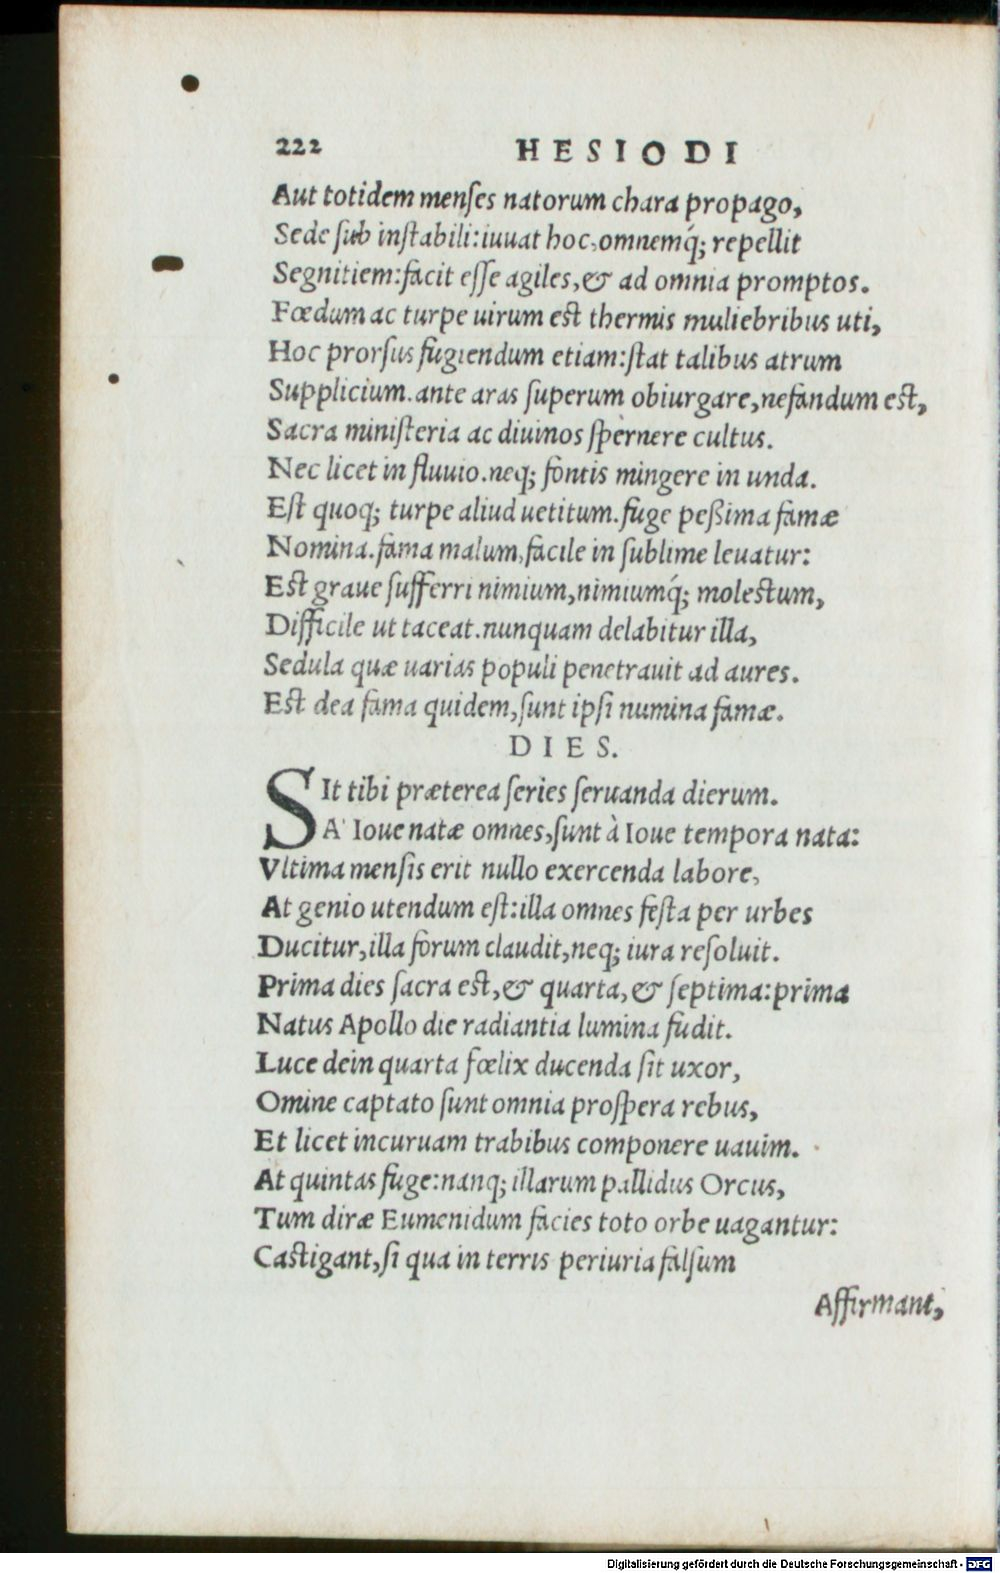 222 HESIODI
Aut totidem menſes natorum chara propago,
Sede ſub inſtabili:iuuat hoc,omnemq́; repellit
Segnitiem:facit eſſe agiles,& ad omnia promptos.
Fœdum ac turpe uirum est thermis muliebribus uti,
Hoc prorſus fugiendum etiam:ſtat talibus atrum
Supplicium.ante aras ſuperum obiurgare,nefandum est,
Sacra miniſteria ac diuinos ſpernere cultus.
Nec licet in fluuio.neq; fontis mingere in unda.
Eſt quoq; turpe aliud uetitum.fuge peßima famæ
Nomina.fama malum,facile in ſublime leuatur:
Est graue ſufferri nimium,nimiumq́; molestum,
Difficile ut taceat.nunquam delabitur illa,
Sedula quæ uarias populi penetrauit ad aures.
Est dea fama quidem,ſunt ipſi numina famæ.
DIES.
SIt tibi præterea ſeries ſeruanda dierum.
A' Ioue natæ omnes,ſunt à Ioue tempora nata:
Vltima menſis erit nullo exercenda labore,
At genio utendum eſt:illa omnes feſta per urbes
Ducitur,illa forum claudit,neq; iura reſoluit.
Prima dies ſacra est,& quarta,& ſeptima:prima
Natus Apollo die radiantia lumina fudit.
Luce dein quarta fœlix ducenda ſit uxor,
Omine captato ſunt omnia proſpera rebus,
Et licet incuruam trabibus componere nauim.
At quintas fuge:nanq; illarum pallidus Orcus,
Tum diræ Eumenidum facies toto orbe uagantur:
Castigant,ſi qua in terris periuria falſum
Affirmant,
Digitalisierung gefördert durch die Deutsche Forschungsgemeinschaft - DFG